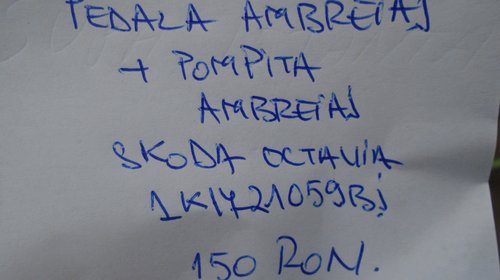 PEDALA AMBREIAJ
+ POMPITA
AMBREIAJ
SKODA OCTAVIA
1K1721059BJ
150 RON.